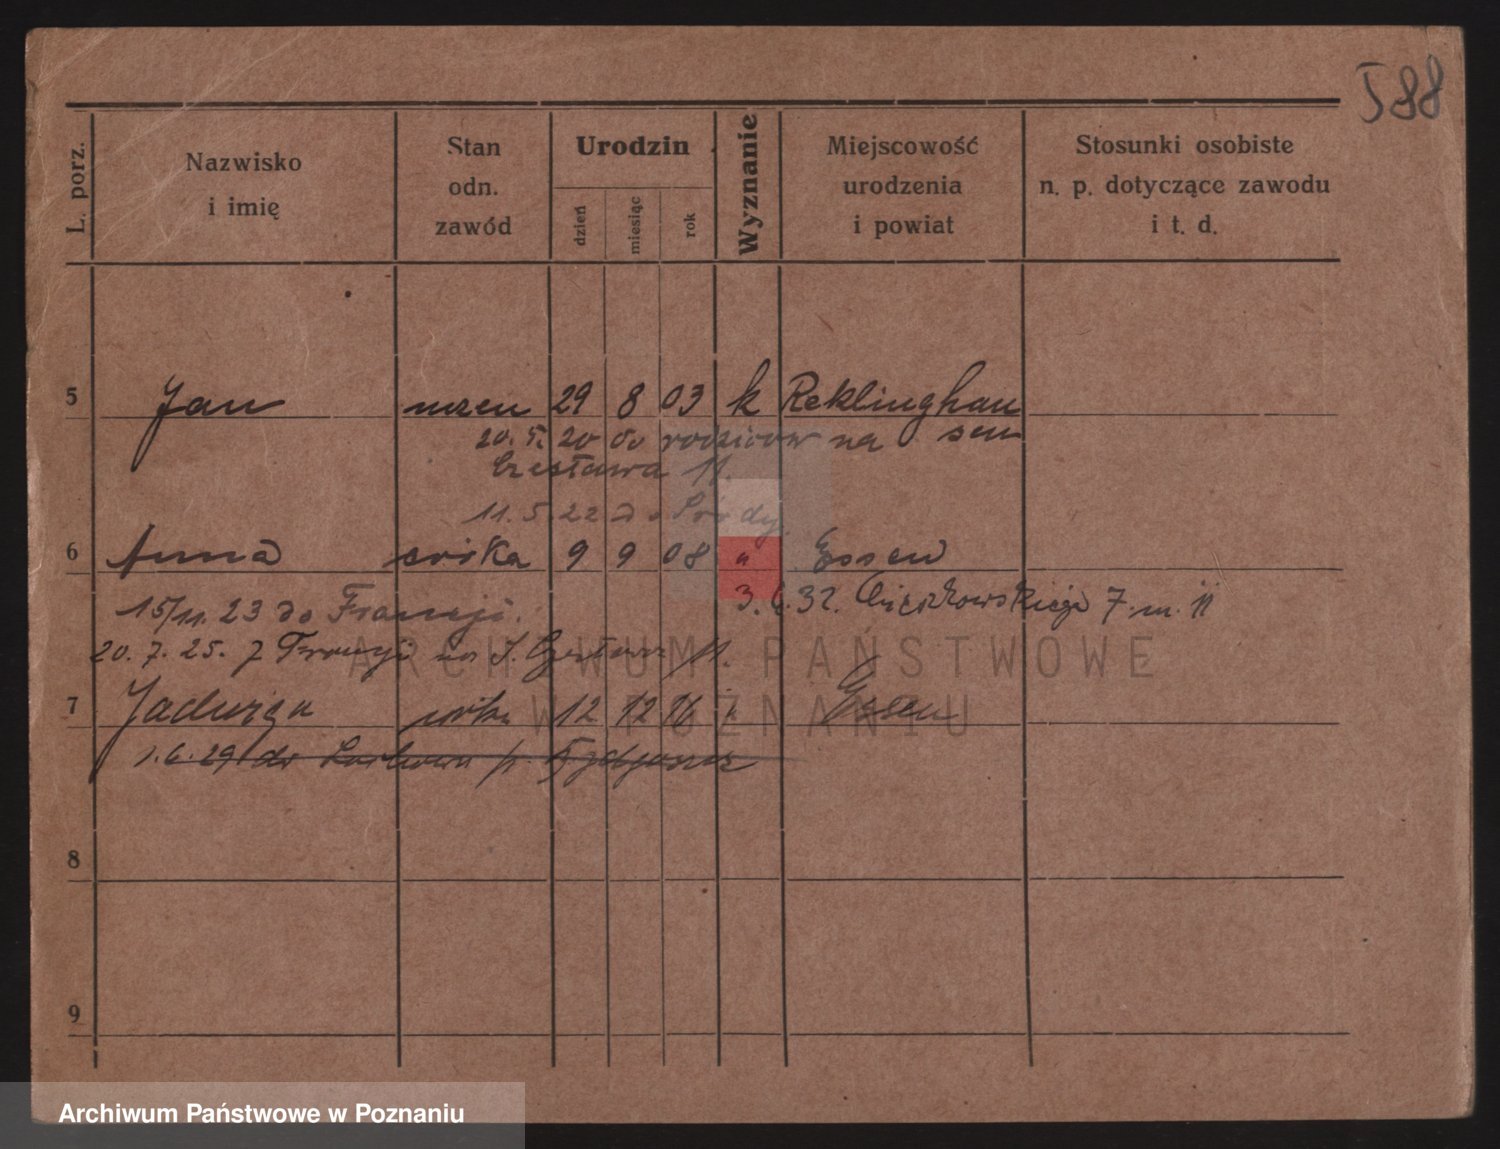 588
L. porz. Nazwisko i imię Stan odn. zawód Urodzin dzień miesiąc rok Wyznanie Miejscowość urodzenia i powiat Stosunki osobiste n. p. dotyczące zawodu i t. d.
5 Jan uczeń 29 8 03 k Reklinghau
sen
20. 5. 20 do rodziców na
Czesława 11.
11. 5. 22 do Środy
6 Anna córka 9 9 08 " Essen
3. 6. 32. Cieszkowskiego 7 m. 11
15/11. 23 do Francji.
20. 7. 25. z Francji na Czesława 11.
7 Jadwiga córka 12 12 16 k Essen
1. 6. 29 do p.
8
9
ARCHIWUM PAŃSTWOWE
W POZNANIU
Archiwum Państwowe w Poznaniu